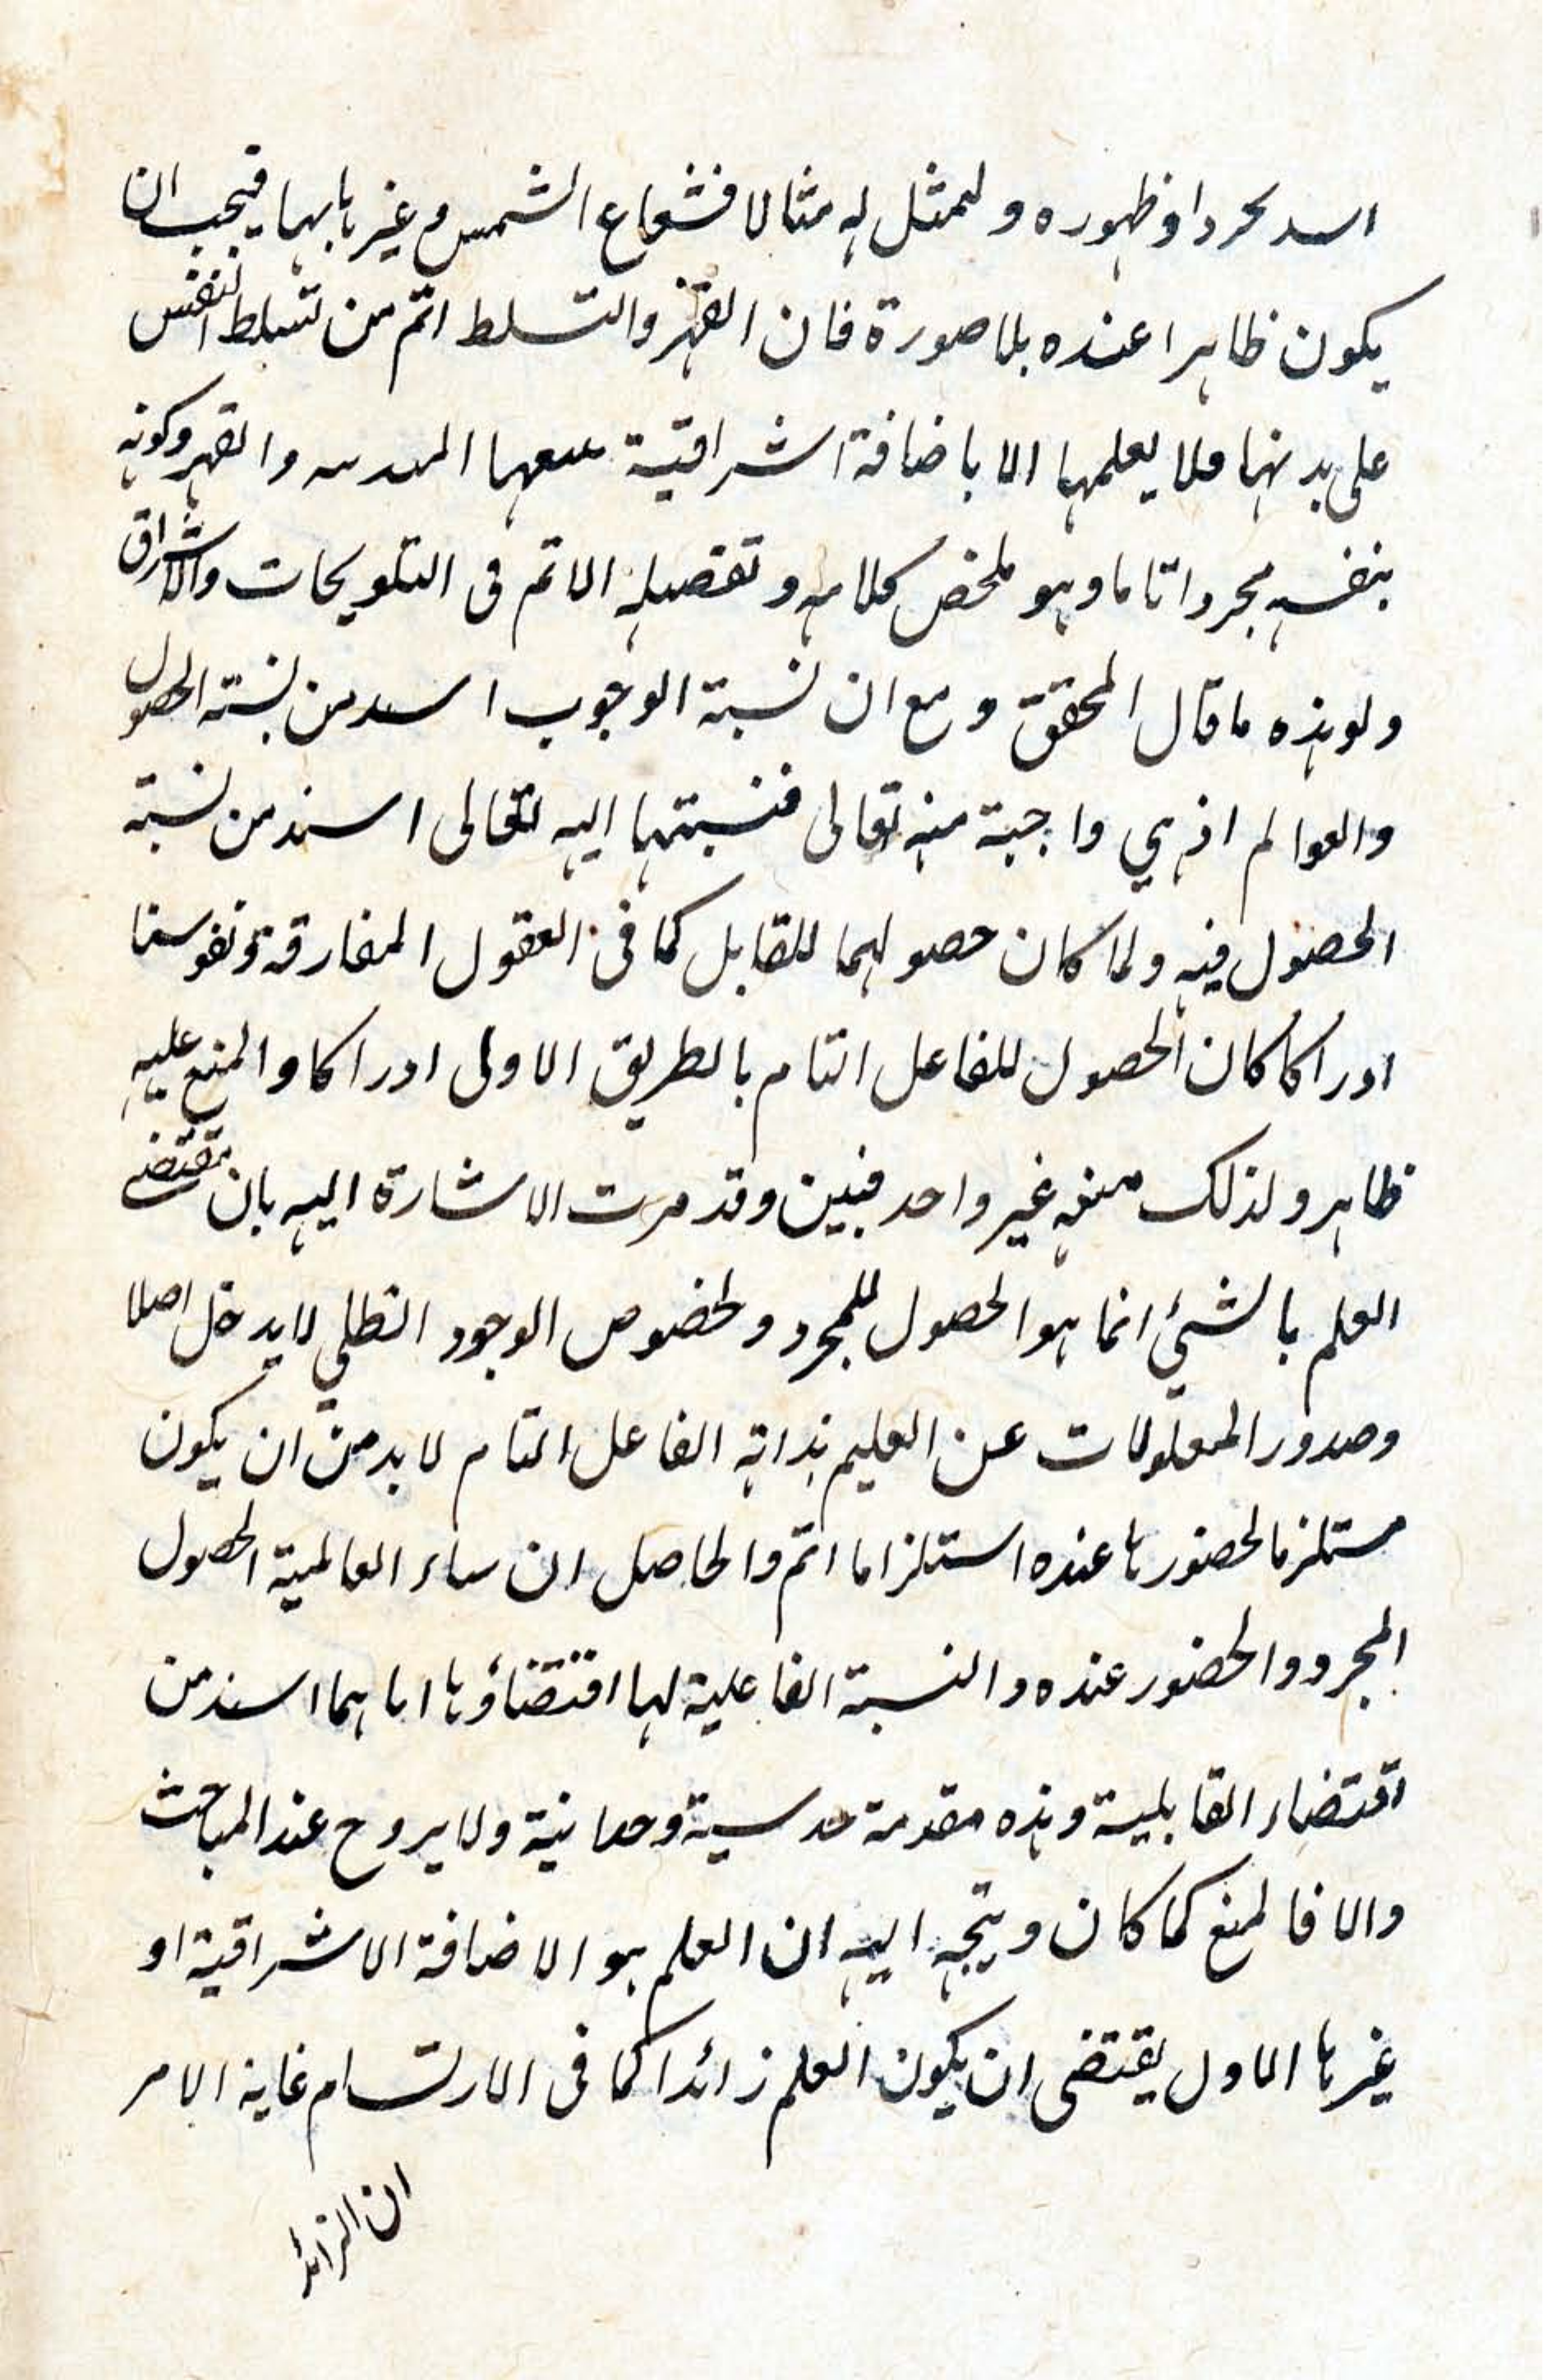 اسد تحردا وظهوره ولنمثل له مثالا فشعاع الشمس وغيربابها فيجب ان
يكون ظاهرا عنده بلا صورة فان القهر والتسلط اتم من تسلط النفس
على بدنها فلا يعلمها الا باضافة اشراقية والقهر وكونه
بنفسه مجردا تاما وهو ملخص كلامه وتفصيله الاتم فى التلويحات والاشراق
ولو هذه ما قال المحقق ومع ان نسبة الوجوب اسد من نسبته الحصول
والعوالم اذ هي واجبة منه تعالى فنسبتها اليه تعالى اسند من نسبته
الحصول فيه ولما كان حصولهما للقابل كما فى العقول المفارقة ونفوسنا
ادراكا كان الحصول للفاعل التام بالطريق الاولى ادراكا والمنع عليه
ظاهر ولذلك منعه غير واحد فبين وقد مرت الاشارة اليه بان مقتضى
العلم بالشئ انما هو الحصول للمجرد ولخصوص الوجود الظلي لا يدخل اصلا
وصدور المعلولات عن العليم بذاته الفاعل التام لا بد من ان يكون
مستلزما لحضورها عنده استلزاما اتم والحاصل ان ساء العالمية الحصول
المجرد والحضور عنده والنسبة الفاعلية لها اقتضاؤها اياهما اسند من
اقتضاء القابلية وهذه مقدمة حدسية وحدانية ولا يروح عند المباحث
والا فالمنع كما كان ويتجه اليه ان العلم هو الاضافة الاشراقية او
غيرها الاول يقتضى ان يكون العلم زائدا كما فى الارتسام غاية الامر
ان الزائد